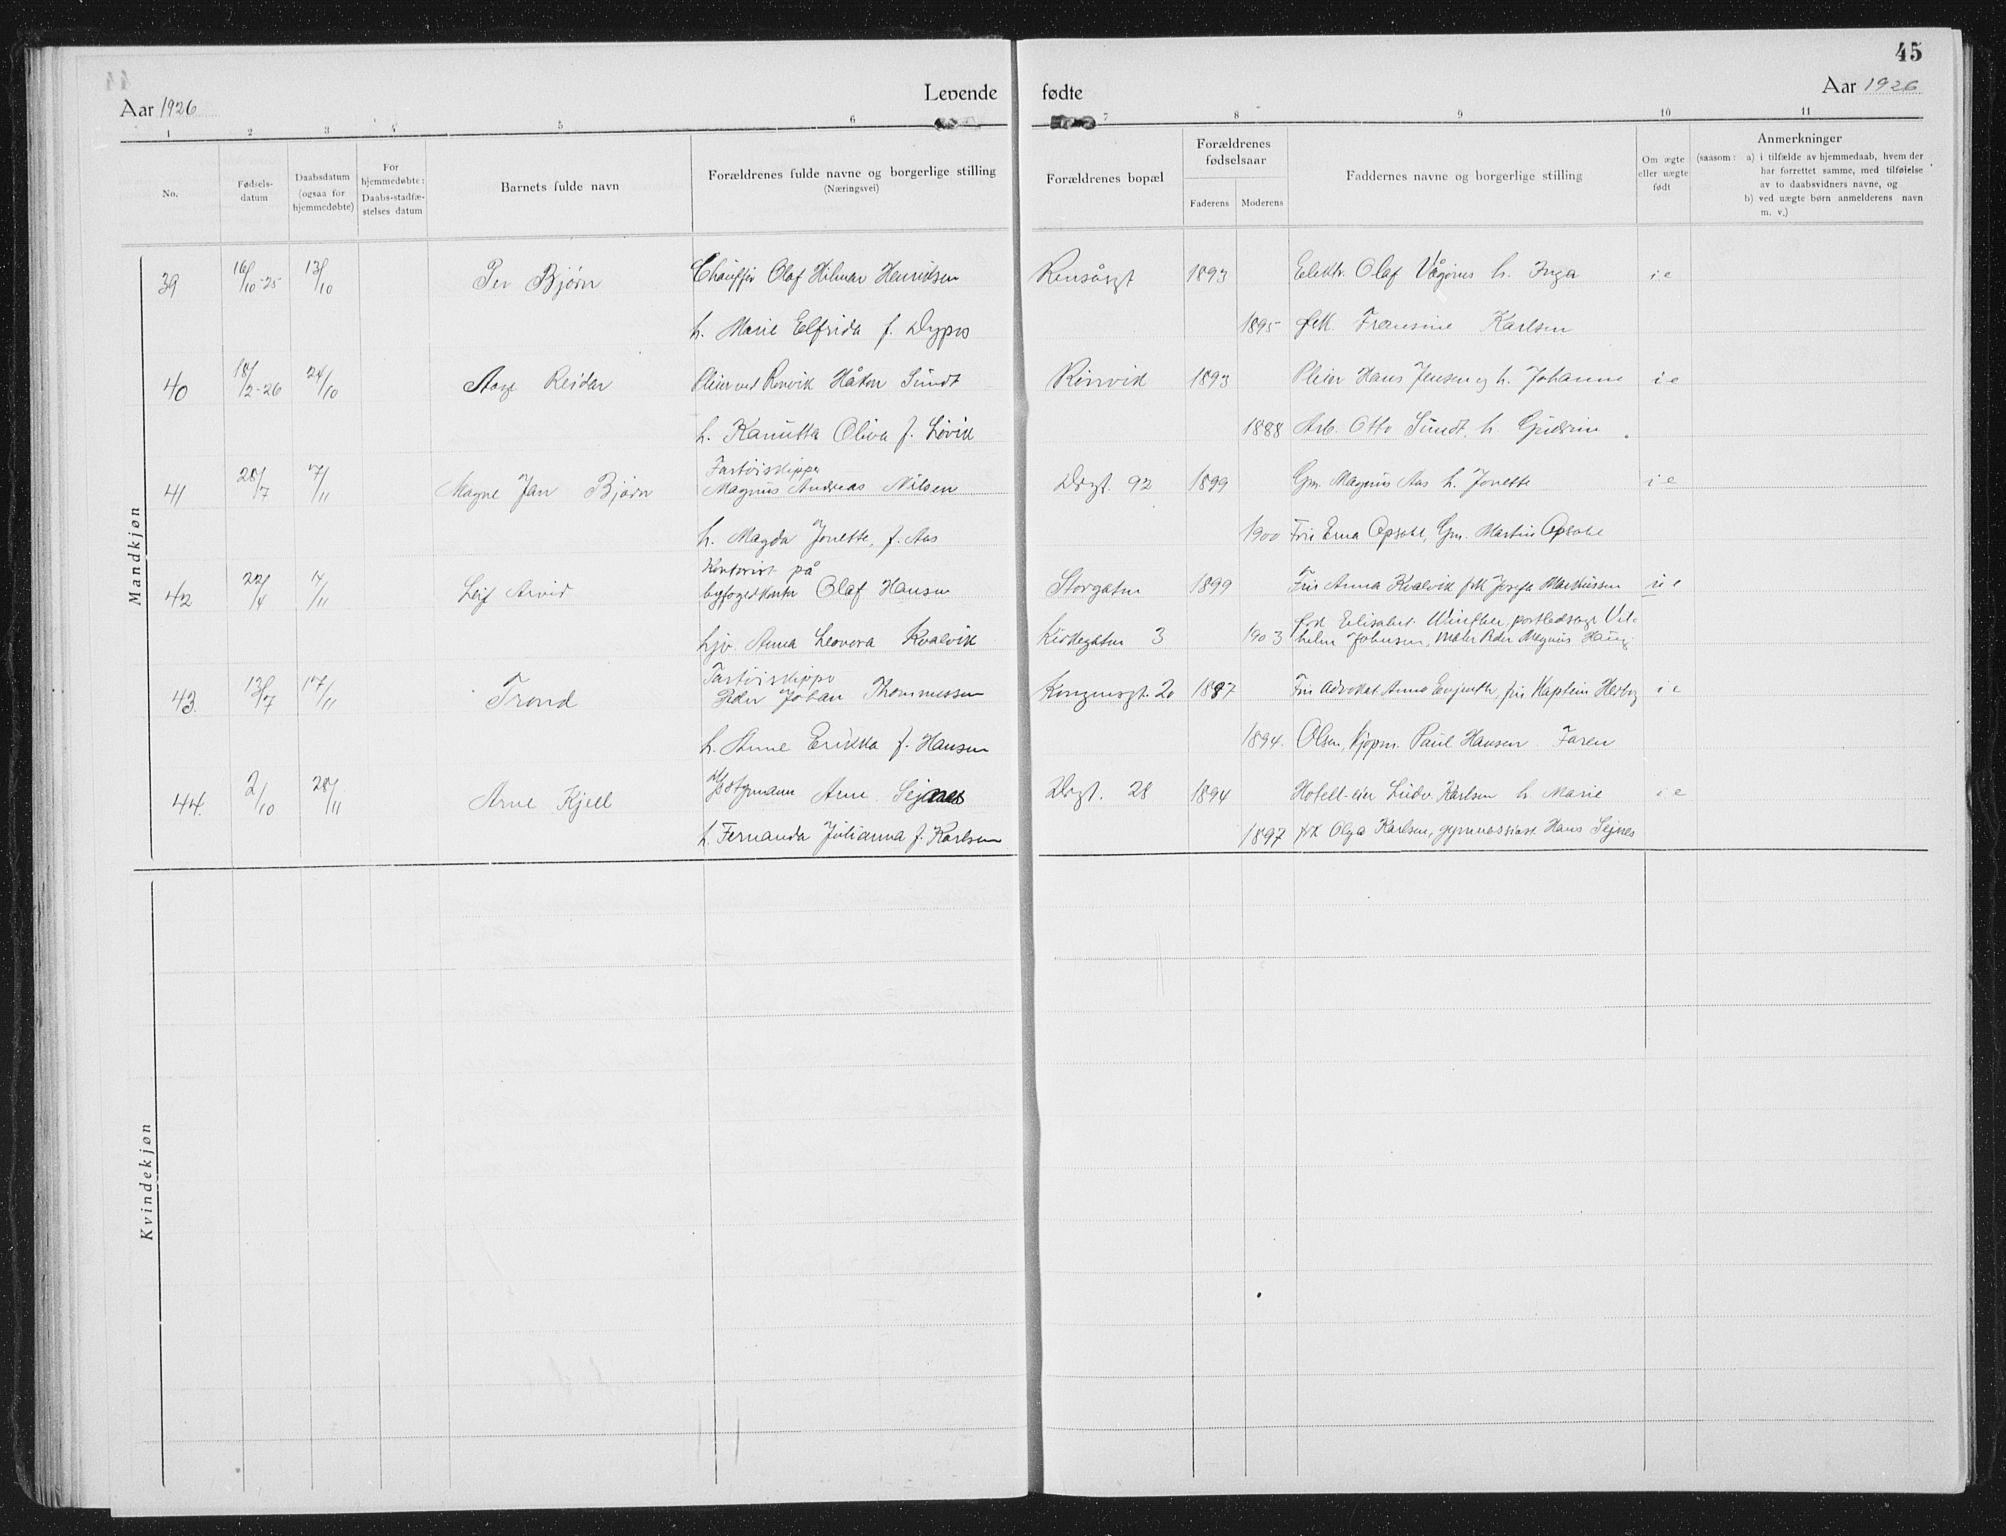 45
Aar 1926
Levende
fødte
Aar 1926
1 2 3 4 5 6 7 8 9 10 11
No.
Fødsels-
datum
Daabsdatum
(ogsaa for
hjemmedøbte)
For
hjemmedøbte:
Daabs-stadfæ-
stelses datum
Barnets fulde navn
Forældrenes fulde navne og borgerlige stilling
(Næringsvei)
Forældrenes bopæl
Forældrenes
fødselsaar
Faderens
Moderens
Faddernes navne og borgerlige stilling
Om ægte
eller uægte
født
Anmerkninger
(saasom: a) i tilfælde av hjemmedaab, hvem der
har forrettet samme, med tilføielse
av to daabsvidners navne, og
b) ved uægte børn anmelderens navn
m. v.)
Mandkjøn
39 16/10-25 13/10 Per Bjørn Chauffør Olaf Hilmar Henriksen Rensåsgt 1893 Elektr. Olaf Vågønes h. Inga i e
h. Marie Elfrida f. Dypos 1895 Fransine Karlsen
40 18/2-26 24/10 Aage Reidar Pleier ved Rønvik Håkon Sundt Rønvik 1893 Pleier Hans Jensen og h. Johanne i e
h. Kanutta Oliva f. Løvik 1888 Arb. Otto Sundt, h. Gudrun
41 28/7 7/11 Magne Jan Bjørn Fartøisskipper
Magnus Andreas Nilsen Drgt. 92 1899 Gm. Magnus Aas h. Jonette i e
h. Magda Jonette, f. Aas 1900 Fru Erna Opsahl, Gm. Martin Opsahl
42 22/4 14/11 Leif Arvid Kontorist på
byfogedkontor Olaf Hansen Storgaten 1899 Fru Anna Kvalvik frk Josefa Markussen u e
Ljv. Anna Leonora Kvalvik Kirkegaten 3 1903 frk Elisabet Winther, postbud Vil-
helm Johnsen, Maler Peder Magnus Haug
43. 13/7 17/11 Trond Fartøisskipper
Peder Johan Thommessen Kongensgt. 20 1887 Fru Advokat Anna fru Kaptein i e
h. Anne Erikka f. Hansen 1894. Olsen, kjøpm. Paul Hansen Faren
44. 2/10 28/11 Arne Kjell Arne Sejnes Drgt. 28 1894 Hotell-eier Ludv. Karlsen h. Marie i e
h. Fernanda Julianna f. Karlsen 1897 frk Olga Karlsen, gymnasiast Hans Sejnes
Kvindekjøn